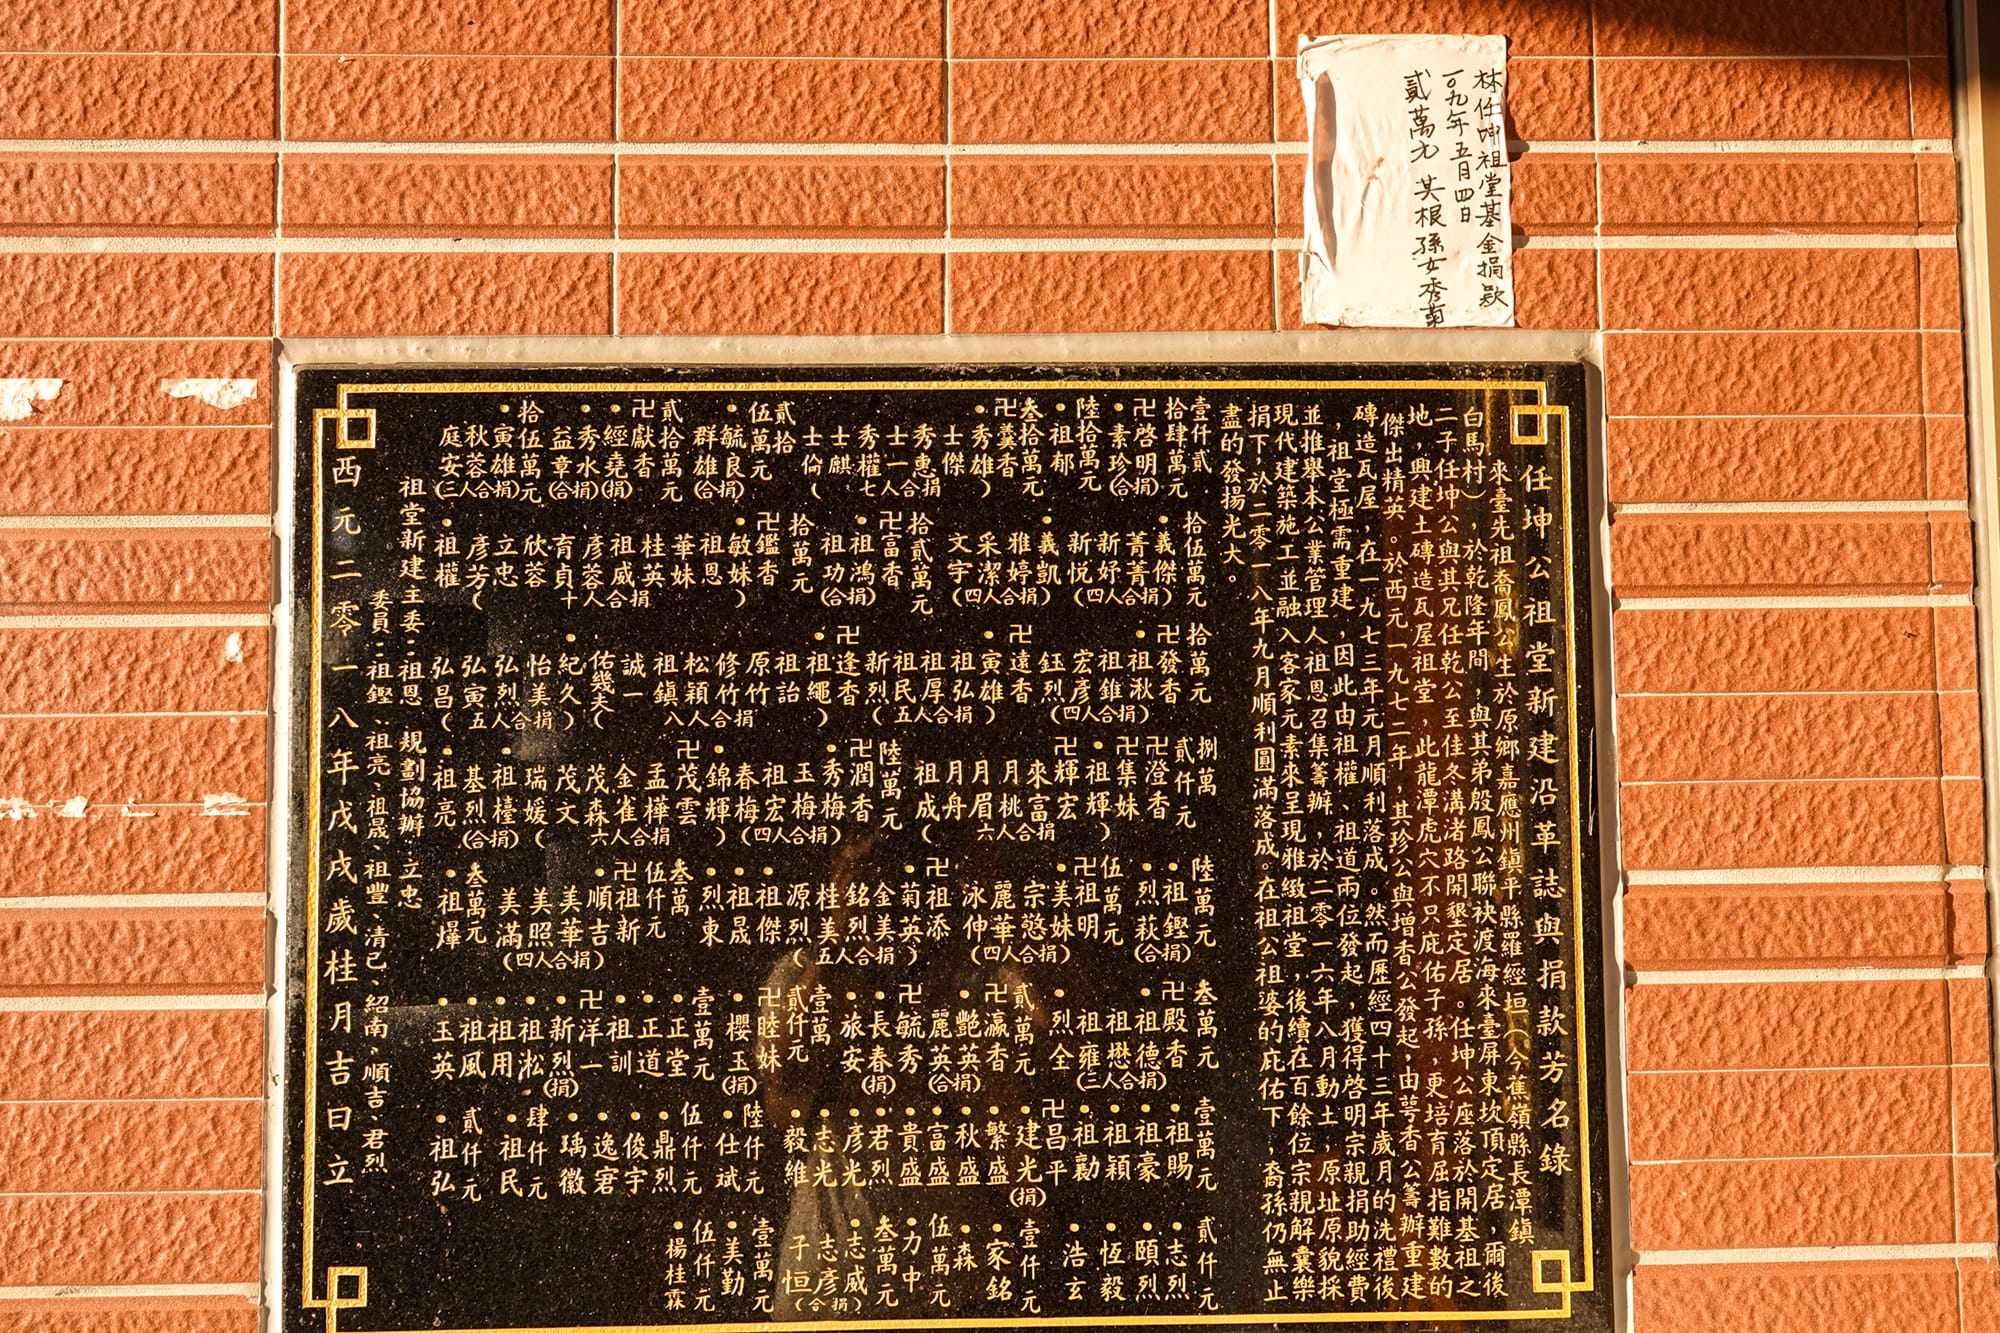 林任坤祖堂基金捐款
一0九年五月四日
貳萬元 其根孫女秀蘭
任坤公祖堂新建沿革誌與捐款芳名錄
來臺先祖喬鳳公生於原鄉嘉應州鎮平縣羅經垣（今蕉嶺縣長潭鎮
白馬村），於乾隆年間，與其弟殷鳳公聯袂渡海來臺屏東坎頂定居，爾後
二子任坤公與其兄任乾公至佳冬溝渚路開墾定居。任坤公座落於開基祖之
地，興建土磚造瓦屋祖堂，此龍潭虎穴不只庇佑子孫，更培育屈指難數的
傑出精英。於西元一九七二年，其珍公與增香公發起，由萼香公籌辦重建
磚造瓦屋，在一九七三年元月順利落成。然而歷經四十三年歲月的洗禮後
，祖堂極需重建，因此由祖權、祖道兩位發起，獲得啓明宗親捐助經費
並推舉本公業管理人祖恩召集籌辦，於二零一六年八月動土，原址原貌採
現代建築施工並融入客家元素來呈現雅緻祖堂，後續在百餘位宗親解囊樂
捐下於二零一八年九月順利圓滿落成。在祖公祖婆的庇佑下，裔孫仍無止
盡的發揚光大。
壹仟貳
拾肆萬元
卍啓明捐
•素珍(合)
陸拾萬元
•祖郁
叁拾萬元
卍羹香
•秀雄)
士傑
秀惠捐
士一合
秀權七
士麒
士倫(
貳拾
伍萬元
•毓良捐
群雄(合)
貳拾萬元
卍獻香
經堯(捐)
•秀水捐
益章(合)
拾伍萬元
•寅雄捐
秋蓉人合
庭安(三
拾伍萬元
•義傑捐
菁菁(合
新妤人
新悅(四
•義凱捐
雅婷合
采潔人
文宇(四
拾貳萬元
卍富香
•祖鴻捐
祖功(合)
拾萬元
卍鑑香
•敏妹)
祖恩
華妹
桂英捐
祖威合
彥蓉人
育貞十
欣蓉
立忠
彥芳(
•祖權
拾萬元
卍發香
•祖湫捐
祖錐合
宏彥人
鈺烈(四
卍遠香
•寅雄捐
祖弘合
祖厚人
祖民五
新烈(
卍逢香
•祖繩)
祖詒
原竹捐
修竹合
松穎人
祖鎮八
誠一
佑幾夫(
•紀久)
怡美捐
弘烈人合
弘寅五
弘昌(
捌萬
貳仟元
卍澄香
•集妹
•祖輝)
卍輝宏捐
來富合
月桃人
月眉六
月舟
祖成(
陸萬元
卍潤香
•秀梅)
玉梅捐
祖宏合
春梅(四人
•錦輝)
卍茂雲
孟樺捐
金雀合
茂森六人
茂文
瑞媛(
•祖檯捐
基烈(合)
•祖亮
陸萬元
•祖鏗捐
•烈萩(合)
伍萬元
卍祖明
•美妹捐
宗憨合
麗華人
泳伸(四
卍祖添
•菊英)
金美捐
銘烈合
桂美五人
源烈(
•祖傑
•祖晟
•烈東
叁萬
伍仟元
卍祖新
•順吉)
美華捐
美照合
美滿(四人
叁萬元
•祖爗
叁萬元
卍殿香
•祖德捐
祖懋合
祖雍(三人
•烈全
貳萬元
卍瀛香
•艷英捐
麗英(合)
卍毓秀
•長春(捐)
•旅安
壹萬
貳仟元
卍睦妹
•櫻玉(捐)
壹萬元
•正堂
•正道
•祖訓
卍洋一
•新烈(捐)
•祖淞
•祖用
•祖風
•玉英
壹萬元
•祖賜
•祖豪
•祖穎
•祖勸
卍昌平
•建光(捐)
•繁盛
•秋盛
•富盛
•貴盛
•君烈
•彥光
•志光
•毅維
陸仟元
•仕斌
伍仟元
•鼎烈
•俊宇
•逸宭
•瑀徽
肆仟元
•祖民
貳仟元
•祖弘
貳仟元
•志烈
•頤烈
•恆毅
•浩玄
壹仟元
•家銘
•森
伍萬元
•力中
叁萬元
•志威捐
志彥合
子恒(
壹萬元
•美勤
伍仟元
•楊桂霖
祖堂新建主委：祖恩 規劃協辦：立忠
委員：祖鏗、祖亮、祖晟、祖豐、清己、紹南、順吉、君烈
西元二零一八年戊戌歲桂月吉日立